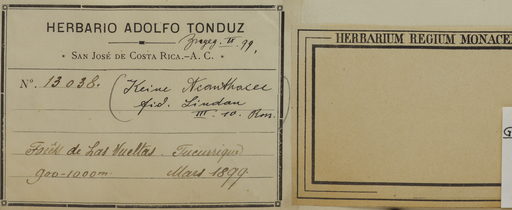 HERBARIO ADOLFO TONDUZ
99,
• SAN JOSÉ DE COSTA RICA.—A. C. •
Nº. 13038.
(Keine Acanthacee
fid. Lindau
III. 10.
Forêt de Las Vueltas. Tucurrique
900-1000m Mars 1899
HERBARIUM REGIUM MONACE
G